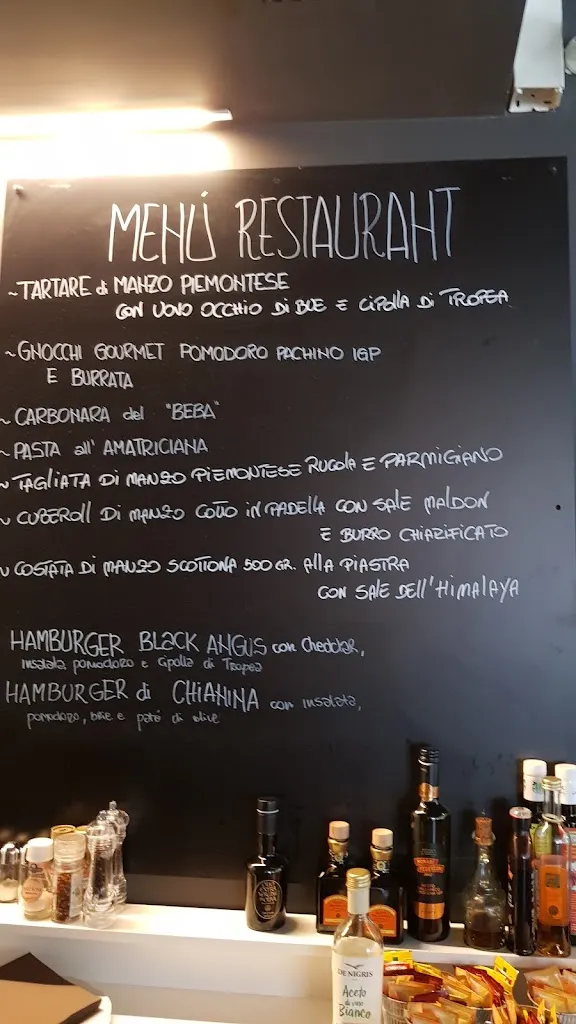 MENÚ RESTAURANT
~TARTARE di MANZO PIEMONTESE
CON UOVO OCCHIO DI BUE E CIPOLLA DI TROPEA
~GNOCCHI GOURMET POMODORO PACHINO IGP
E BURRATA
~CARBONARA del "BEBA"
~PASTA all' AMATRICIANA
~TAGLIATA DI MANZO PIEMONTESE RUCOLA E PARMIGIANO
~CUBEROLL DI MANZO COTTO IN PADELLA CON SALE MALDON
E BURRO CHIARIFICATO
~COSTATA DI MANZO SCOTTONA 500GR. ALLA PIASTRA
CON SALE DELL'HIMALAYA
HAMBURGER BLACK ANGUS con Cheddar,
insalata, pomodoro e cipolla di Tropea
HAMBURGER di CHIANINA con insalata,
pomodoro, brie e paté di olive
DE NIGRIS
Aceto
di vino
Bianco